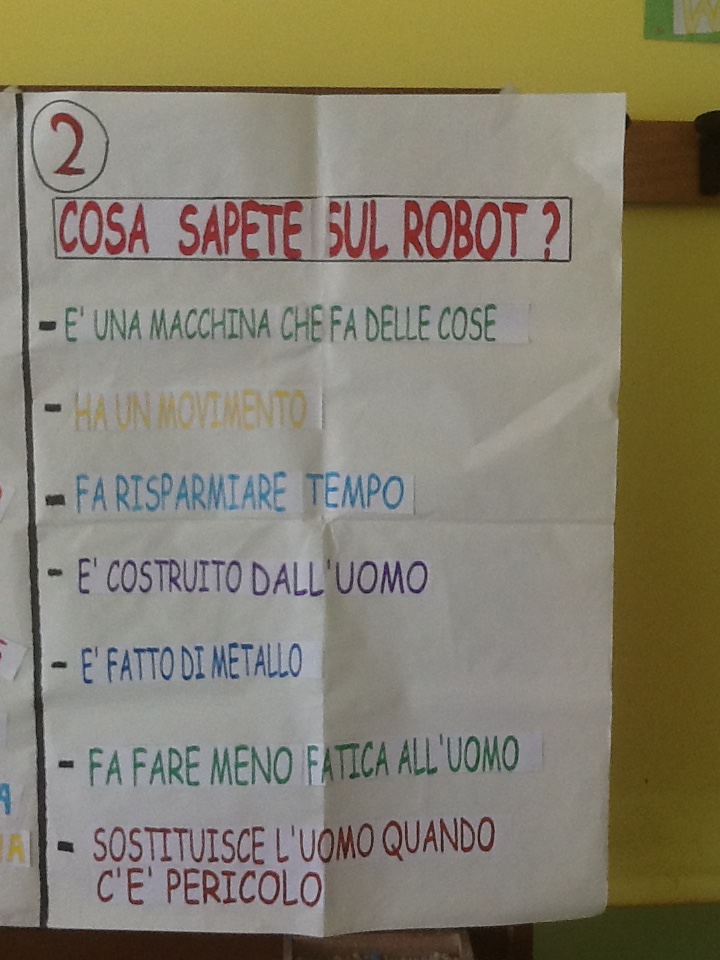 2
COSA SAPETE SUL ROBOT ?
- E' UNA MACCHINA CHE FA DELLE COSE
- HA UN MOVIMENTO
- FA RISPARMIARE TEMPO
- E' COSTRUITO DALL'UOMO
- E' FATTO DI METALLO
- FA FARE MENO FATICA ALL'UOMO
- SOSTITUISCE L'UOMO QUANDO
C'E' PERICOLO